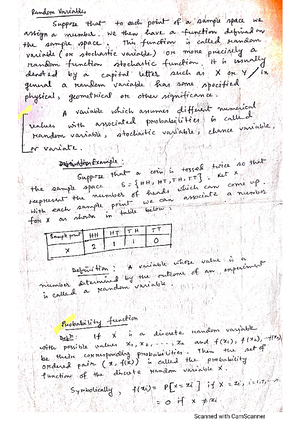 Random Variables
Suppose that to each point of a sample space we
assign a number. We then have a function defined on
the sample space. This function is called random
variable (or stochastic variable) or more precisely a
random function stochastic function. It is usually
denoted by a capital letter such as X or Y. In
general a random variable has some specified
physical, geometrical or other significance.
A variable which assumes different numerical
values with associated probabilities is called
random variable, stochastic variable, chance variable,
or variate.
Example:
Suppose that a coin is tossed twice so that
the sample space S = {HH, HT, TH, TT}. Let X
represent the number of heads which can come up.
With each sample point we can associate a number
for X as shown in table below:
Sample point HH HT TH TT
X 2 1 1 0
Definition: A variable whose value is a
number determined by the outcome of an experiment
is called a random variable
Probability function
Defn: If X is a discrete random variable
with possible values x₁, x₂, ... and f(x₁), f(x₂),
be their corresponding probabilities. Then the set of
ordered pair (x, f(x)) is called the probability
function of the discrete random variable X.
Symbolically, f(xi) = P[X = xi] if X = xi, i=1,2,...
= 0 if X ≠ xi
Scanned with CamScanner